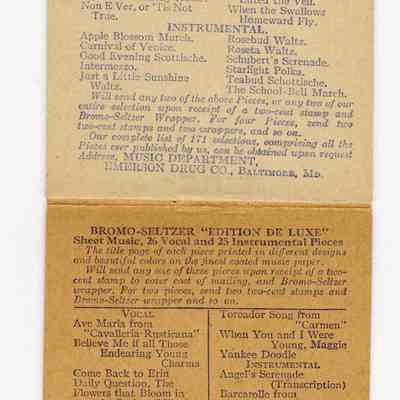 Non E Ver, or 'Tis Not
True.
Lifted the Veil.
When the Swallows
Homeward Fly.
INSTRUMENTAL.
Apple Blossom March.
Carnival of Venice.
Good Evening Scottische.
Intermezzo.
Just a Little Sunshine
Waltz.
Rosebud Waltz.
Roseta Waltz.
Schubert's Serenade.
Starlight Polka.
Teabud Schottische.
The School-Bell March.
Will send any two of the above Pieces, or any two of our
entire selection upon receipt of a two-cent stamp and
Bromo-Seltzer Wrapper. For four Pieces, send two
two-cent stamps and two wrappers, and so on.
Our complete list of 171 selections, comprising all the
Pieces ever published by us, can be obtained upon request
Address, MUSIC DEPARTMENT,
EMERSON DRUG CO., BALTIMORE, MD.
BROMO-SELTZER "EDITION DE LUXE"
Sheet Music, 26 Vocal and 25 Instrumental Pieces
The title page of each piece printed in different designs
and beautiful colors on the finest coated music paper.
Will send any one of three pieces upon receipt of a two-
cent stamp to cover cost of mailing, and Bromo-Seltzer
wrapper. For two pieces, send two two-cent stamps and
Bromo-Seltzer wrapper and so on.
VOCAL
Ave Maria from
"Cavalleria Rusticana"
Believe Me if all Those
Endearing Young
Charms
Come Back to Erin
Daily Question, The
Flowers that Bloom in
Toreador Song from
"Carmen"
When You and I Were
Young, Maggie
Yankee Doodle
INSTRUMENTAL
Angel's Serenade
(Transcription)
Barcarolle from